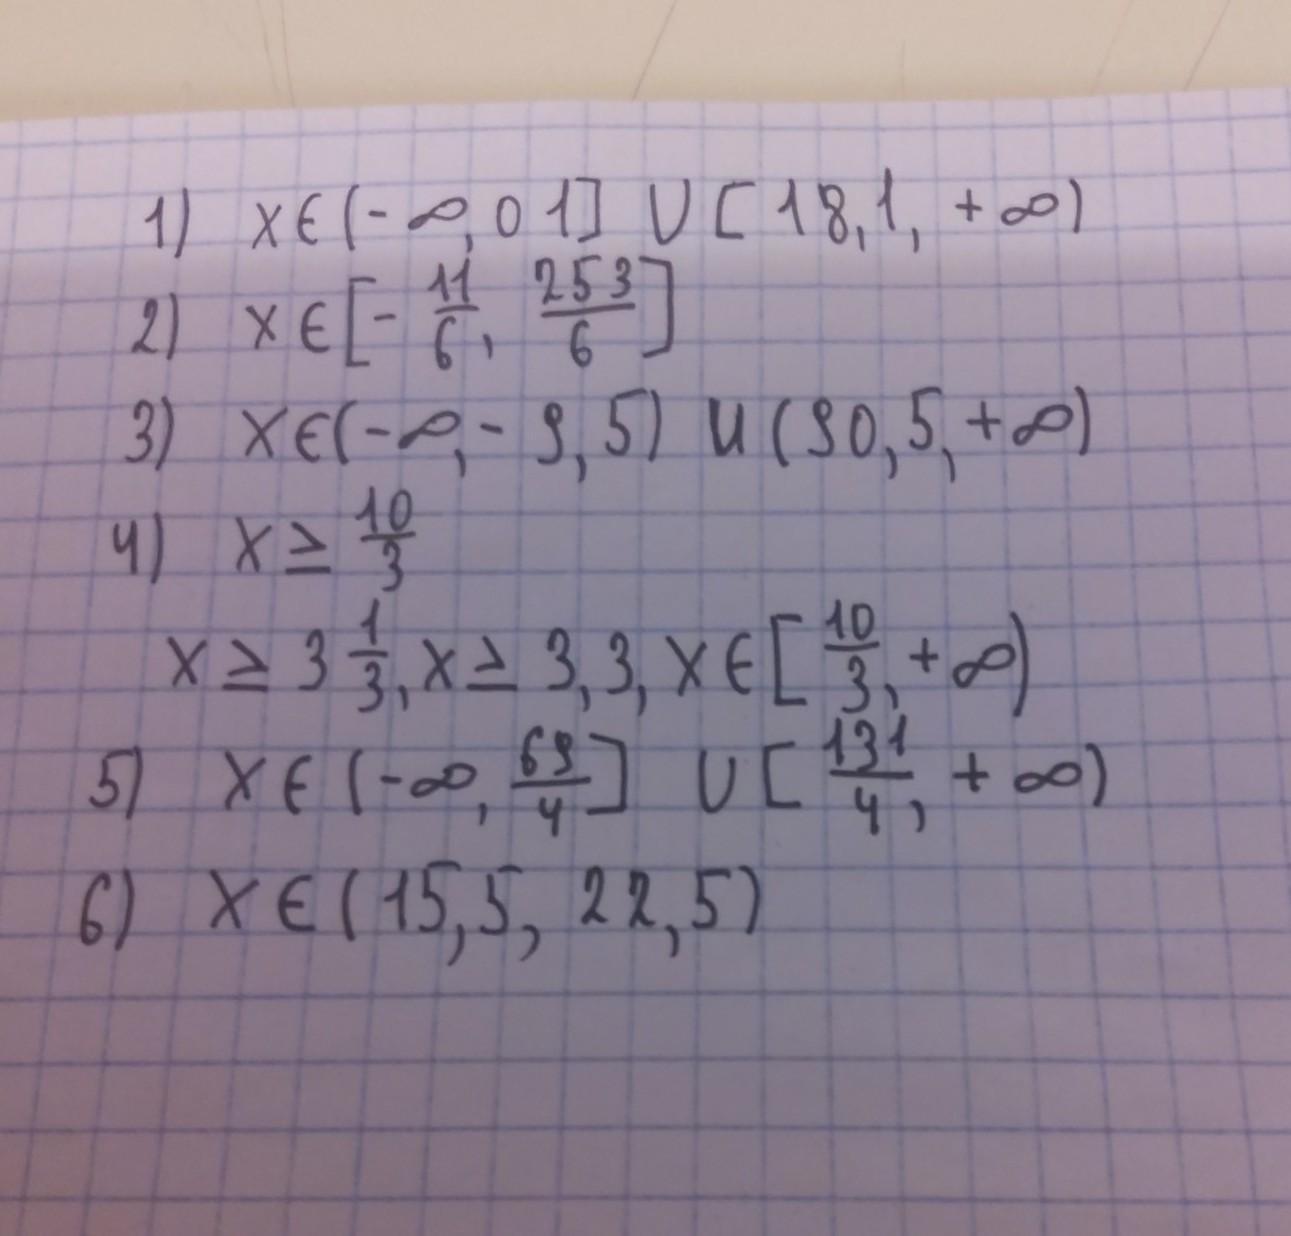 1) x∈(-∞,0 1] ∪ [18,1, +∞)
2) x∈[-11/6, 253/6]
3) x∈(-∞,-9,5) ∪ (90,5,+∞)
4) x≥10/3
x≥3 1/3, x≥3,3, x∈[10/3,+∞)
5) x∈(-∞, 69/4] ∪ [131/4, +∞)
6) x∈(15,5, 22,5)